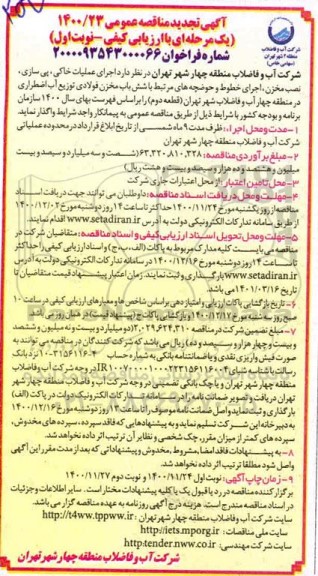 آگهی تجدید مناقصه عمومی ۱۴۰۰/۲۳
(یک مرحله‌ای با ارزیابی کیفی - نوبت اول)
شماره فراخوان ۲۰۰۰۰۹۳۵۴۳۰۰۰۰۶۶
شرکت آب و فاضلاب
منطقه ۴ شهر تهران
(سهامی خاص)
شرکت آب و فاضلاب منطقه چهار شهر تهران در نظر دارد اجرای عملیات خاکی، پی سازی،
نصب مخزن، اجرای خطوط و حوضچه های مرتبط با شش باب مخزن فولادی توزیع آب اضطراری
در منطقه چهار آب و فاضلاب شهر تهران (قطعه دوم) را براساس فهرست بهای سال ۱۴۰۰ سازمان
برنامه و بودجه کشور با شرایط ذیل از طریق مناقصه عمومی به پیمانکار واجد شرایط واگذار نماید.
۱- مدت و محل اجرا: ظرف مدت ۹ ماه شمسی از تاریخ ابلاغ قرارداد در محدوده عملیاتی
شرکت آب و فاضلاب منطقه چهار شهر تهران
۲- مبلغ برآوردی مناقصه: ۶۳,۲۲۰,۸۱۰,۲۲۸ (شصت و سه میلیارد و دویست و بیست
میلیون و هشتصد و ده هزار و دویست و بیست و هشت ریال)
۳- محل تامین اعتبار: از محل اعتبارات جاری شرکت
۴- مهلت و محل دریافت اسناد مناقصه: داوطلبان می توانند جهت دریافت اسناد
مناقصه از روز یکشنبه مورخ ۱۴۰۰/۱۱/۲۴ حداکثر تا ساعت ۱۴ روز دوشنبه مورخ ۱۴۰۰/۱۲/۰۲
از طریق سامانه تدارکات الکترونیکی دولت به آدرس www.setadiran.ir اقدام نمایند.
۵- مهلت و محل تحویل اسناد ارزیابی کیفی و اسناد مناقصه: متقاضیان شرکت در
مناقصه می بایست کلیه مدارک مربوط به پاکات (الف، ب، ج) و اسناد ارزیابی کیفی را حداکثر
تا ساعت ۱۴ روز دوشنبه مورخ ۱۴۰۰/۱۲/۱۶ در سامانه تدارکات الکترونیکی دولت به آدرس
www.setadiran.ir بارگذاری و ثبت نمایند. زمان اعتبار پیشنهاد قیمت متقاضیان تا
تاریخ ۱۴۰۱/۰۳/۱۶ می باشد.
۶- تاریخ بازگشایی پاکات: ارزیابی و امتیازدهی براساس شاخص ها و معیارهای ارزیابی کیفی در ساعت ۱۰
صبح روز سه شنبه مورخ ۱۴۰۰/۱۲/۱۷ و بازگشایی پاکات ج (پیشنهاد قیمت) در همان روز می باشد.
۷- مبلغ تضمین شرکت در مناقصه
ریال) می باشد که شرکت کنندگان در مناقصه می توانند به
صورت فیش واریزی نقدی و یا ضمانتنامه بانکی به شماره حساب
در وجه شرکت آب و فاضلاب
منطقه چهار شهر تهران و یا چک بانکی تضمینی در وجه شرکت آب و فاضلاب منطقه چهار شهر
تهران دریافت و تصویر ضمانت نامه را در سامانه تدارکات الکترونیک دولت در پاکت (الف)
بارگذاری و ثبت نماید و اصل ضمانت نامه موصوف را تا ساعت ۱۴ روز دوشنبه مورخ ۱۴۰۰/۱۲/۱۶
به دبیرخانه این شرکت تسلیم نماید و به پیشنهادهایی که فاقد سپرده، سپرده های مخدوش،
سپرده های کمتر از میزان مقرر، چک شخصی و نظایر آن ترتیب اثر داده نخواهد شد.
۸- به پیشنهادات فاقد امضا، مشروط، مخدوش و پیشنهاداتی که بعد از مدت مقرر این آگهی
واصل شود مطلقا ترتیب اثر داده نخواهد شد.
۹- زمان چاپ آگهی: نوبت اول ۱۴۰۰/۱۱/۲۴ و نوبت دوم ۱۴۰۰/۱۱/۲۷
برگزار کننده مناقصه در رد یا قبول یک یا کلیه پیشنهادات مختار است. سایر اطلاعات و جزئیات
در اسناد مناقصه مندرج است. هزینه درج آگهی روزنامه به عهده مناقصه گزار می باشد.
سایت شرکت آب و فاضلاب منطقه چهار شهر تهران: http://t4ww.tppww.ir
سایت ملی مناقصات: http://iets.mporg.ir
سایت شرکت مهندسی: http:tender.nww.co.ir
شرکت آب و فاضلاب منطقه چهار شهر تهران